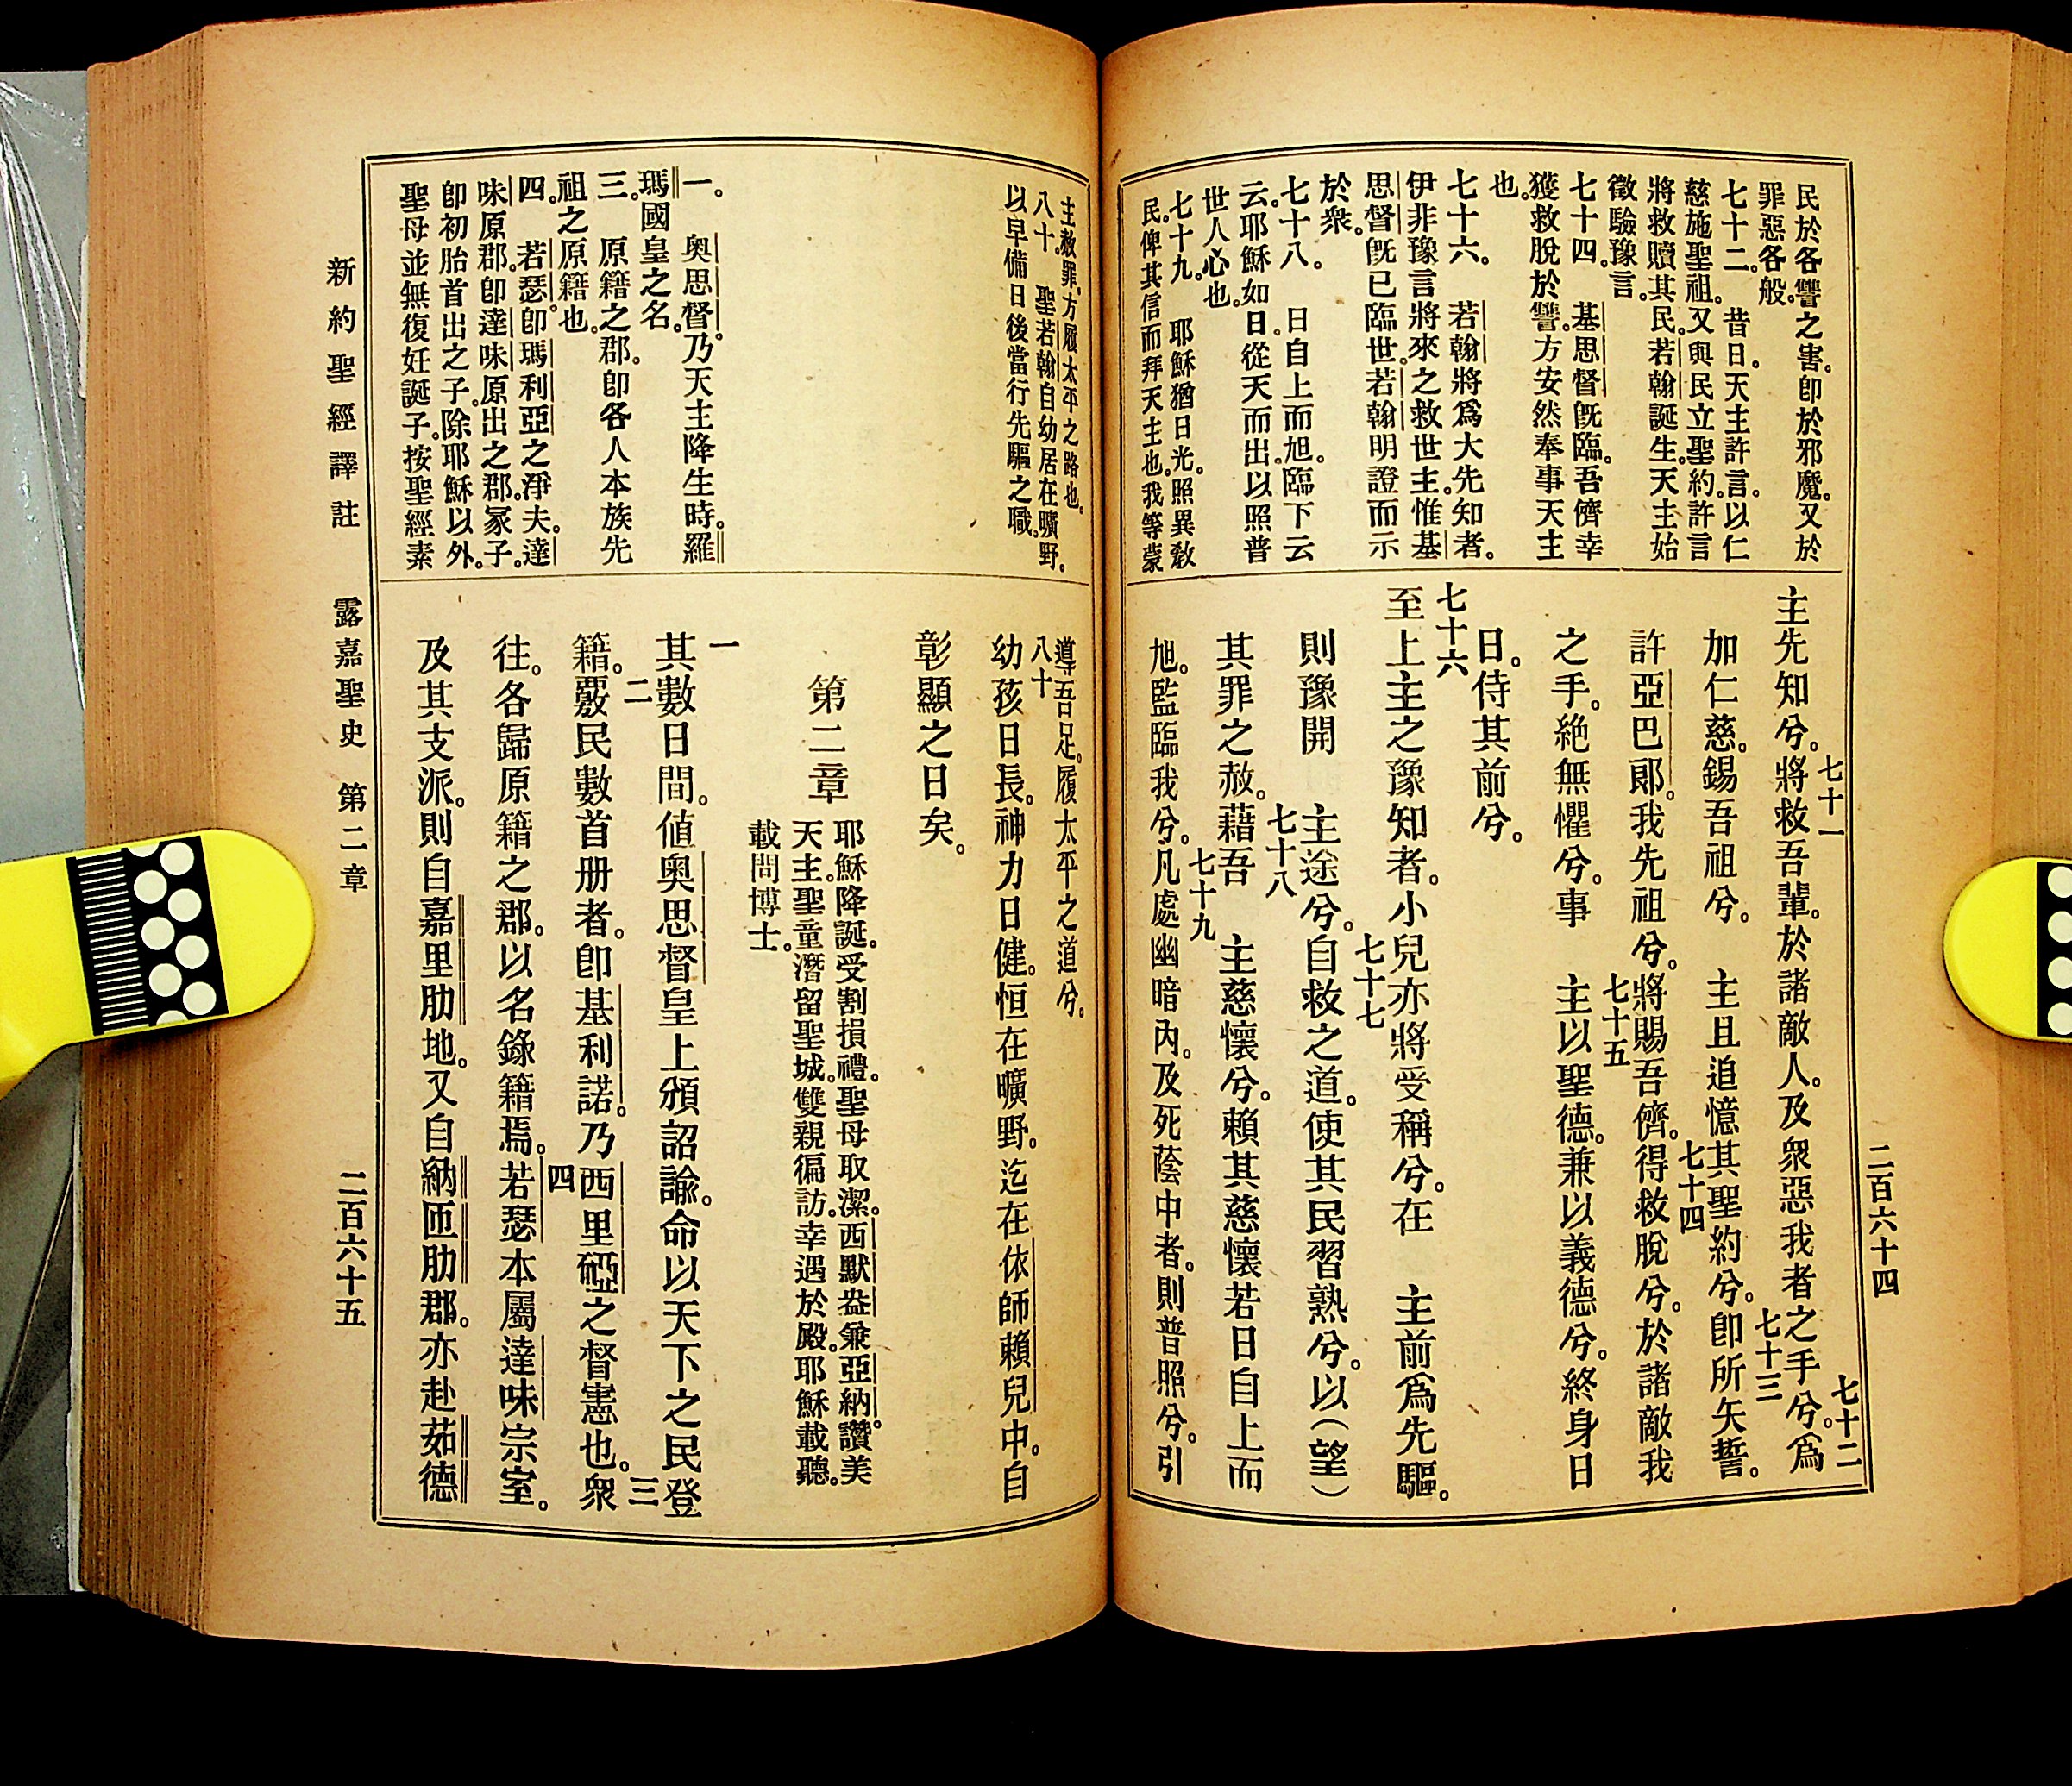 民於各讐之害。卽於邪魔。又於
罪惡各般。
七十二。 昔日。天主許言。以仁
慈施聖祖。又與民立聖約。許言
將救贖其民。若翰誕生。天主始
徵驗豫言。
七十四。 基思督旣臨。吾儕幸
獲救脫於讐。方安然奉事天主
也。
七十六。 若翰將爲大先知者。
伊非豫言將來之救世主。惟基
思督旣已臨世。若翰明證而示
於衆。
七十八。 日自上而旭。臨下云
云。耶穌如日。從天而出。以照普
世人心也。
七十九。 耶穌猶日光。照異敎
民。俾其信而拜天主也。我等蒙
主先知兮。將救吾輩。於諸敵人。及衆惡我者之手兮。爲
七十一
七十二
加仁慈。錫吾祖兮。 主且追憶其聖約兮。卽所矢誓。
七十三
許亞巴郞。我先祖兮。將賜吾儕。得救脫兮。於諸敵我
七十四
之手。絶無懼兮。事 主以聖德。兼以義德兮。終身日
七十五
日。侍其前兮。
七十六
至上主之豫知者。小兒亦將受稱兮。在 主前爲先驅。
七十七
則豫開 主途兮。自救之道。使其民習熟兮。以(望)
七十八
其罪之赦。藉吾 主慈懷兮。賴其慈懷若日自上而
七十九
旭。監臨我兮。凡處幽暗內。及死蔭中者。則普照兮。引
二百六十四
主赦罪。方履太平之路也。
八十。 聖若翰自幼居在曠野。
以早備日後當行先驅之職。
一。 奧思督。乃天主降生時。羅
瑪國皇之名。
三。 原籍之郡。卽各人本族先
祖之原籍也。
四。 若瑟。卽瑪利亞之淨夫。達
味原郡。卽達味原出之郡。冢子。
卽初胎首出之子。除耶穌以外。
聖母並無復妊誕子。按聖經素
導吾足。履太平之道兮。
八十
幼孩日長。神力日健。恒在曠野。迄在依師賴兒中。自
彰顯之日矣。
第二章
耶穌降誕。受割損禮。聖母取潔。西默盎兼亞納。讚美
天主。聖童潛留聖城。雙親徧訪。幸遇於殿。耶穌載聽。
載問博士。
一
其數日間。値奧思督皇上頒詔諭。命以天下之民登
二
籍。覈民數首册者。卽基利諾。乃西里硜之督憲也。衆
三
往。各歸原籍之郡。以名錄籍焉。若瑟本屬達味宗室。
四
及其支派。則自嘉里肋地。又自納匝肋郡。亦赴茹德
新約聖經譯註 露嘉聖史 第二章 二百六十五